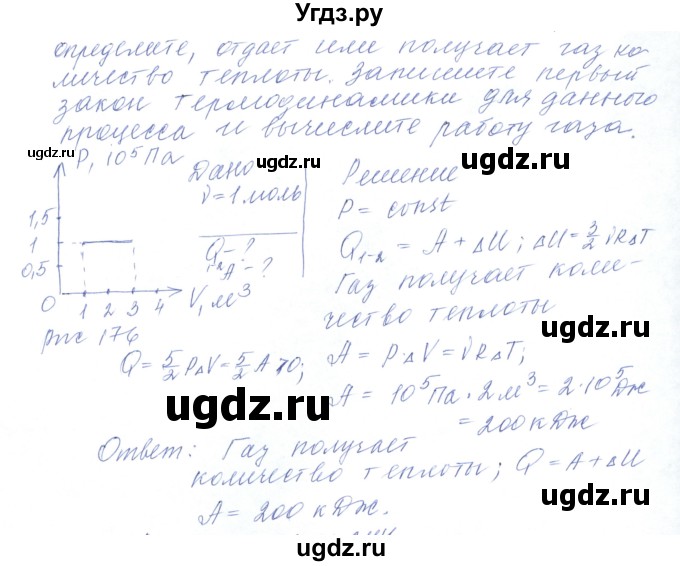 Угдз.ру
определите, отдает или получает газ ко-
личество теплоты. Запишите первый
закон термодинамики для данного
процесса и вычислите работу газа.
P, 10⁵ Па
1,5
1
0,5
0
1 2 3 4 V, м³
рис 176
Дано
ν = 1 моль
Q₁₋₂ - ?
A - ?
Решение
P = const
Q₁₋₂ = A + ΔU; ΔU = 3/2 νRΔT
Газ получает коли-
чество теплоты
A = P·ΔV = νRΔT;
Q = 5/2 PΔV = 5/2 A > 0;
A = 10⁵ Па · 2 м³ = 2·10⁵ Дж
= 200 кДж
Ответ: Газ получает
количество теплоты; Q = A + ΔU
A = 200 кДж.
uдgz.ru